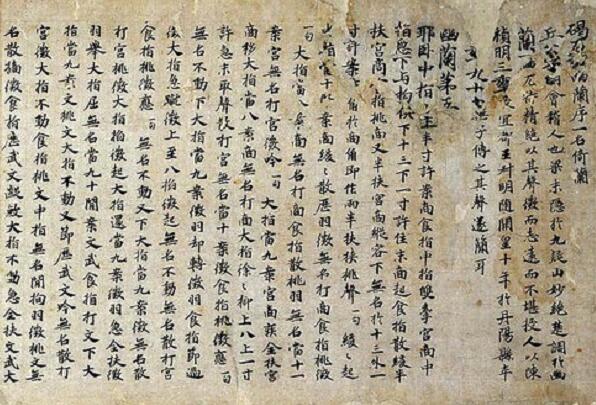 碣石調幽蘭序一名倚蘭
丘公字明會稽人也梁末隱於九疑山妙絕楚調於幽
蘭一曲尤特精絕以其聲微而志遠而不堪授人以陳
禎明三年授宜都王叔明隨開皇十年於丹陽縣卒
年九十七無子傳之其聲遂簡耳
幽蘭第五
耶臥中指十上半寸許案商食指中指雙牽宮商中
指急下与拘俱下十三下一寸許住末商起食指散緩半
扶宮商食指挑商又半扶宮商縱容下無名於十三外一
寸許案商角於商角即作兩半扶挾挑聲一句緩〻起
無名當十一案商緩〻散歷羽徵無名打商食指挑徵
一句大指當八案商無名打商食指散挑羽無名當十一
案宮無名打宮徵吟一句大指當九案宮商疾全扶宮
商移大指當八案商無名打商大指徐〻抑上八上一寸
許急末取聲散打宮無名當十案徵食指挑徵應一句
無名不動下大指當九案徵羽却轉徵羽食指節過
徐大指急蹴徵上至八抬徵起無名不動無名散打宮
食指挑徵應一句無名不動又下大指當九案徵無名散
打宮挑徵大指抬徵起大指還當九案徵羽急全扶徵
羽舉大指屈無名當九十間案文武食指打文下大
指當九案文挑文大指不動又節歷武文吟無名散打
宮徵大指不動食指挑文中指無名間拘羽徵挑文無
名散摘徵食指應武文蠲大指不動急全扶文武大